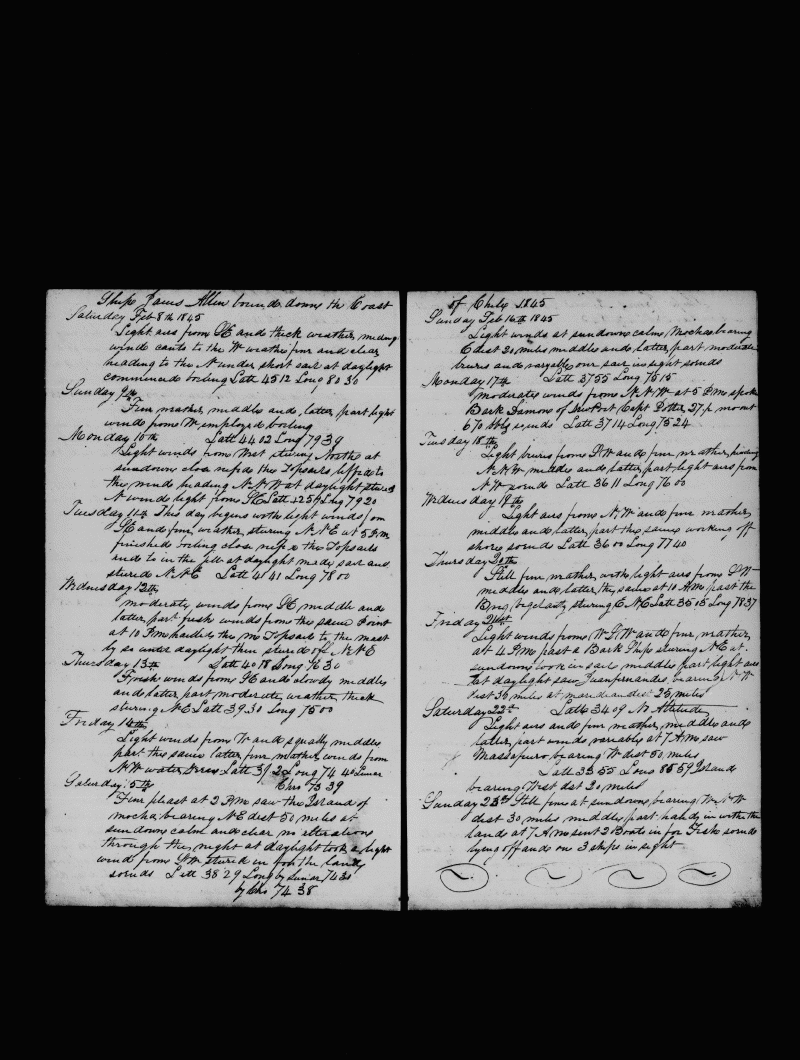 Ship James Allen bound down the Coast
Saturday Feb 8th 1845
Light airs from SE and thick weather, midng
wind cants to the W weather fine and clear
heading to the N under short sail at daylight
commencd boiling Latt 45 12 Long 80 30
Sunday 9th
Fine weather, middle and latter part light
winds from W employed boiling
Monday 10th Latt 44 02 Long 79 39
Light winds from West stering North at
sundown close reefd the Topsails luffd to
the wind heading NNW at daylight sturd
N winds light from SE Latt 42 54 Long 79 20
Tuesday 11th This day begins with light winds from
SE and fine weather, sturing NNE at 5 PM
finished boiling close reef the Topsails
and to in the at daylight made sail and
sturd NNE Latt 41 41 Long 78 00
Wednesday 12th
moderate winds from SE middle and
latter part fresh winds from the same Point
at 10 PM haild the m Topsail to the mast
by so until daylight then sturd off NNE
Thursday 13th Latt 40 18 Long 76 30
Fresh winds from SE and cloudy middle
and latter part moderate weather thick
sturing NE Latt 39 30 Long 75 00
Friday 14th
Light winds from W and squally middle
part the same latter fine weather, winds from
NW water Latt Long 74 40 Lunar
Chro 73 39
Saturday 15th
Fine pleast at 2 PM saw the Island of
mocha bearing NE dist 50 miles at
sundown calm and clear, no alterations
through the night at daylight took a light
wind from SW sturd in for the land
so ends Latt 38 29 Long by Lunar 74 30
by Chro 74 38
of Chile 1845
Sunday Feb 16th 1845
Light winds at sundown calm, Mocha bearing
E dist 20 miles middle and latter, part moderate
breeis and varyable our sail in sight so ends
Monday 17th Latt 37 55 Long 75 15
moderate winds from NNW at 5 PM spoke
Bark Damon of NewPort Capt Potter 27 m out
670 bbls so ends Latt 37 14 Long 75 24
Tuesday 18th
Light breeis from SW and fine weather, heading
NNW middle and latter part light airs from
NW so ends Latt 36 11 Long 76 00
Wednesday 19th
Light airs from NW and fine weather,
middle and latter, part the same working off
shore so ends Latt 36 00 Long 77 40
Thursday 20th
Still fine weather, with light airs from SW
middle and latter, the same at 10 AM past the
Brig sturing ENE Latt 35 05 Long 78 37
Friday 21st
Light winds from WSW and fine weather,
at 4 PM past a Bark Ship sturing NE at
sundown took in sail middle part light airs
at daylight saw Juanfernandes bearing NW
dist 30 miles at meridian dist 25 miles
Saturday 22nd Latt 34 09 No Altitude
Light airs and fine weather, middle and
latter, part winds variable at 7 AM saw
Massafuero bearing W dist 50 miles
Latt 33 55 Long 80 59 Island
bearing West dist 20 miles
Sunday 23d Still fine at sundown bearing WNW
dist 30 miles middle part hauly in with the
land at 7 AM sent 2 Boats in for Fish so ends
lying off and on 3 ships in sight